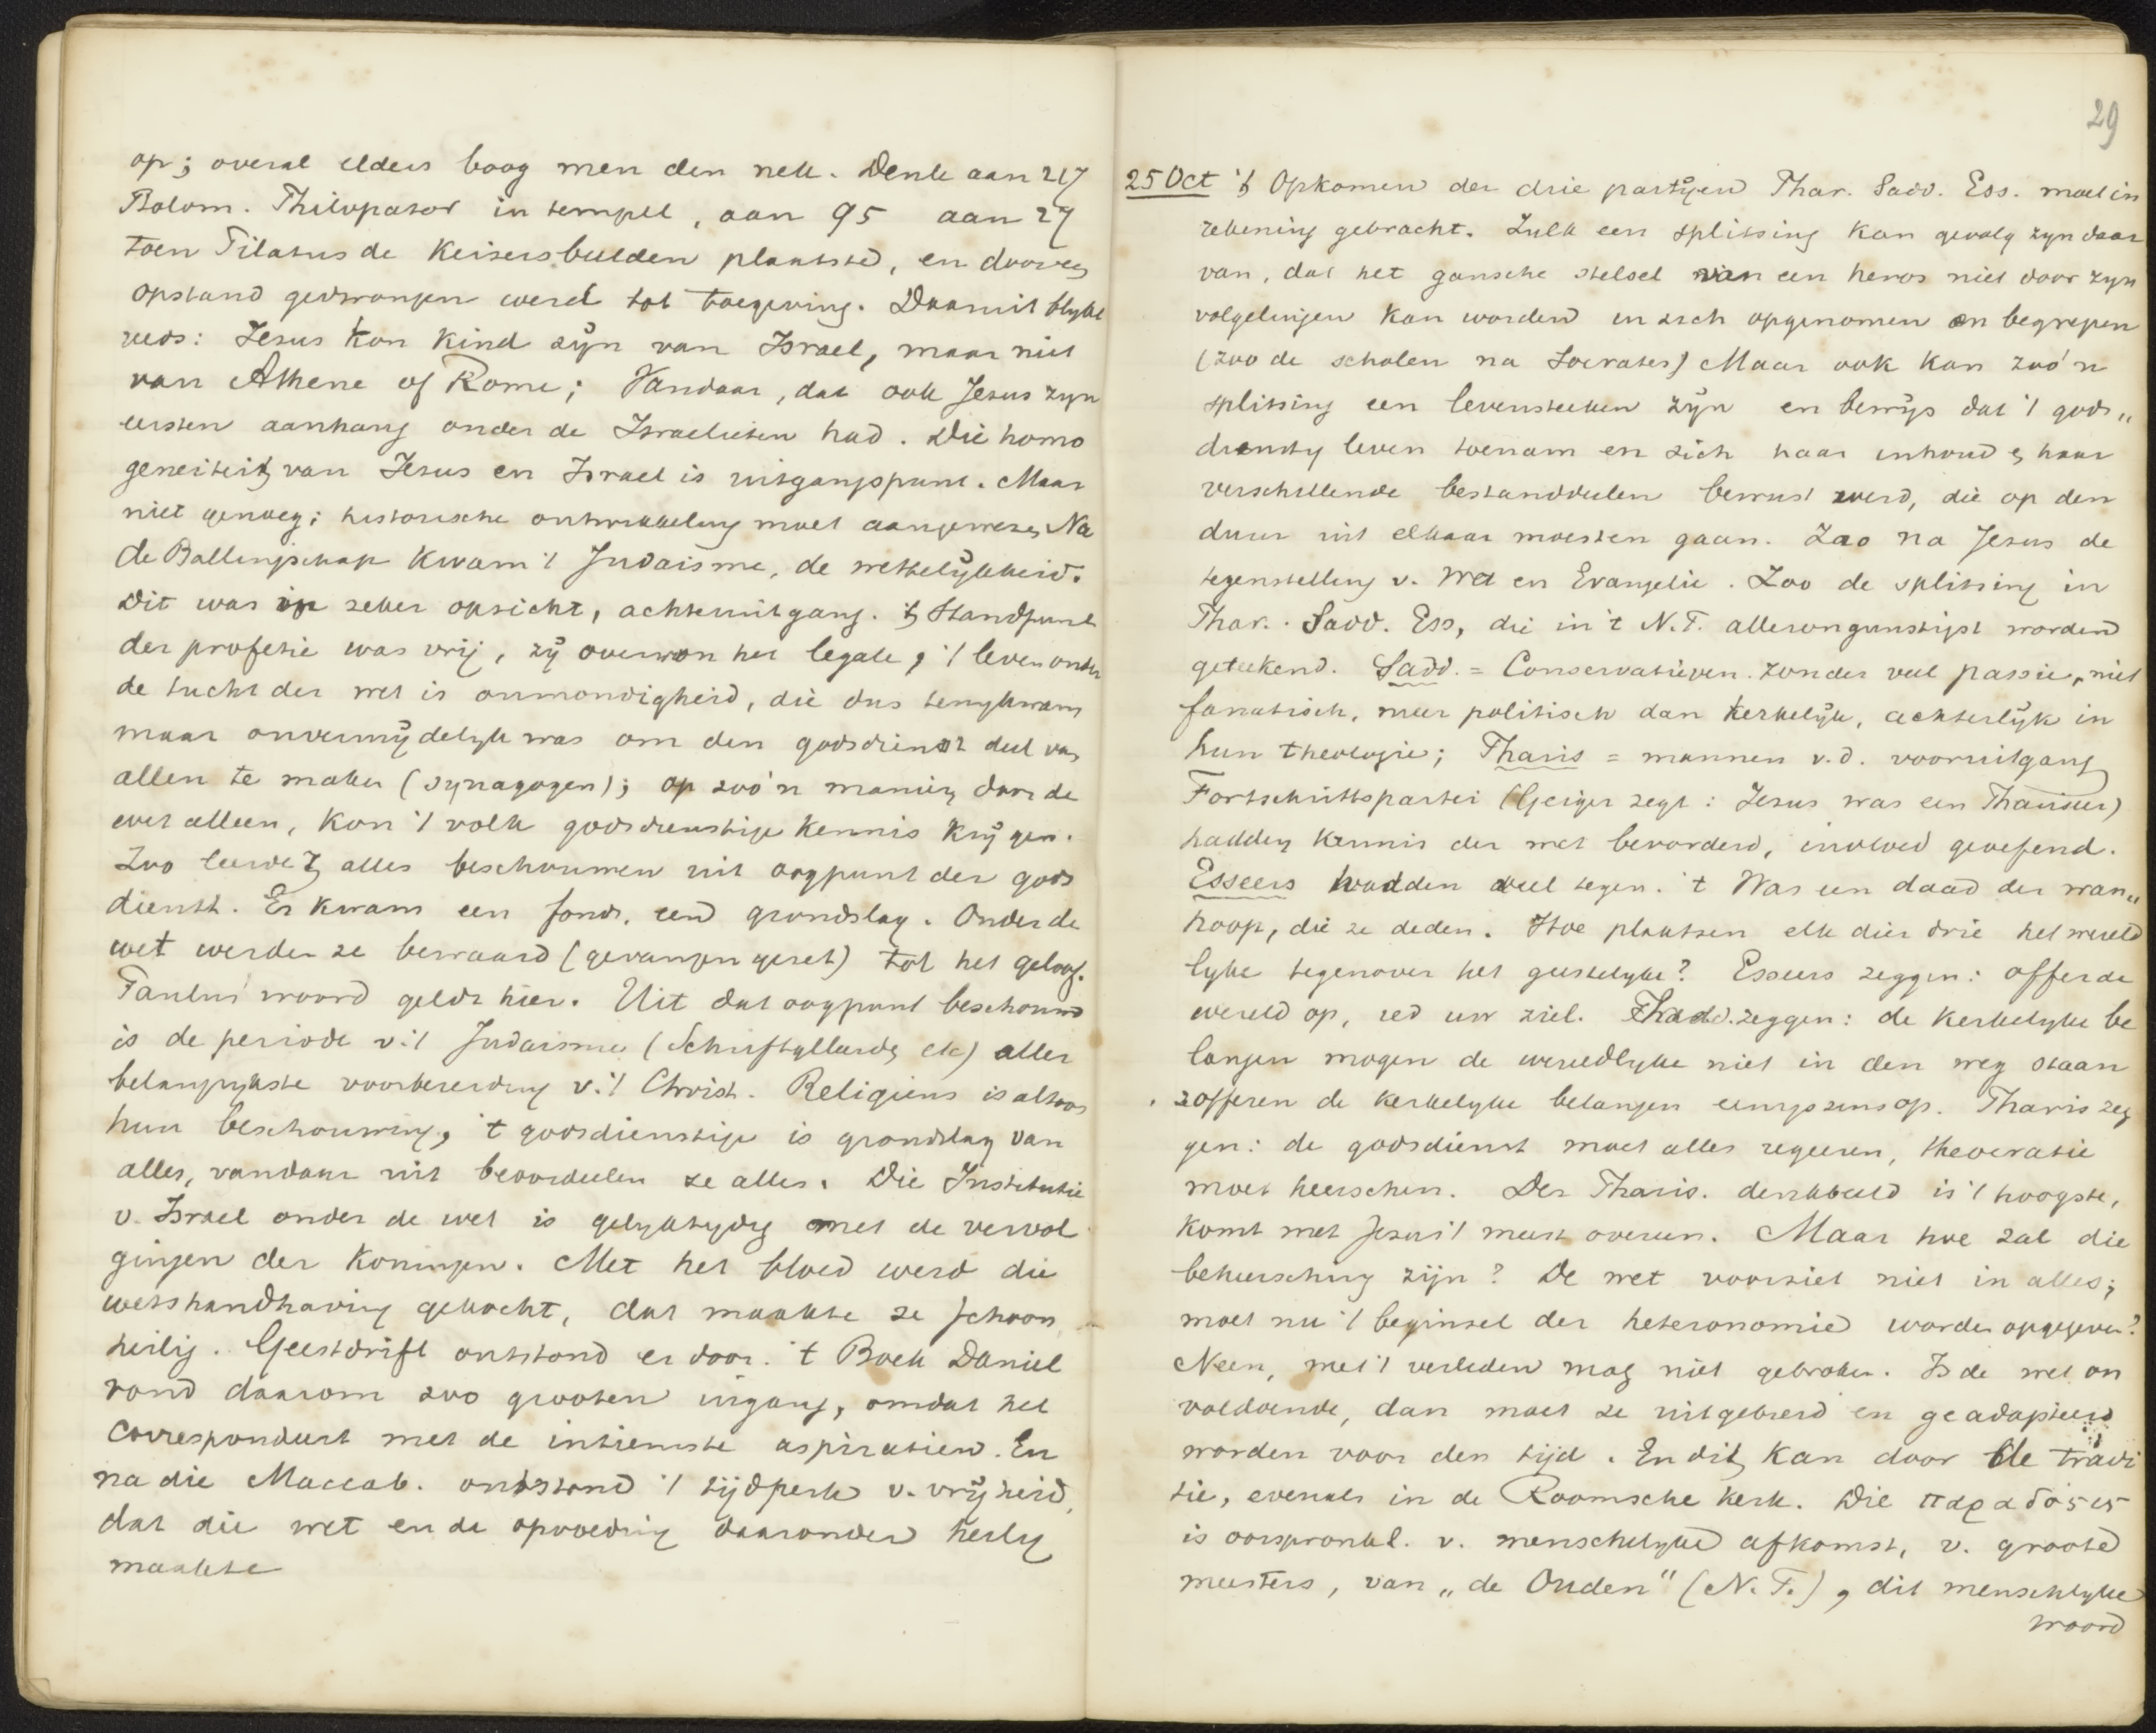 op; overal elders boog men den nek. Denk aan 217
Ptolom. Philopator in tempel, aan 95 aan 27
toen Pilatus de Keisersbeelden plaatste, en door een
opstand gedwongen werd tot toegeving. Daaruit blykt
reeds: Jesus kon kind zÿn van Israel, maar niet
van Athene of Rome; Vandaar, dat ook Jesus zyn
eersten aanhang onder de Israelieten had. Die homo
geneiteit van Jesus en Israel is uitgangspunt. Maar
niet genoeg; historische ontwikkeling moet aangewezen. Na
de Ballingschap kwam 't Judaisme, de wettelÿkheid.
Dit was in zeker opzicht, achteruitgang. 't Standpunt
der profetie was vrij, zÿ overwon het legale, 't leven onder
de tucht der wet is onmondigheid, die dus terugkwam
maar onvermÿdelyk was om den godsdienst deel van
allen te maken (synagogen); op zoo'n manier, door de
wet alleen, kon 't volk godsdienstige kennis krÿgen.
Zoo leerde 't alles beschouwen uit oogpunt der gods
dienst. Er kwam een fonds, een grondslag. Onder de
wet werden ze bewaard (gevangen gezet) tot het geloof.
Paulus' woord geldt hier. Uit dat oogpunt beschouwd
is de periode v. 't Judaisme (Schriftgeleerden etc) aller
belangrykste voorbereiding v. 't Christ. Religieus is altoos
hun beschouwing, 't godsdienstige is grondslag van
alles, vandaar uit beoordeelen ze alles. Die Institutie
v. Israel onder de wet is gelyktydig met de vervol
gingen der Koningen. Met het bloed werd die
wetshandhaving gekocht, dat maakte ze schoon,
heilig. Geestdrift ontstond er door. 't Boek Daniel
vond daarom zoo grooten ingang, omdat het
correspondeert met de intiemste aspiratien. En
na die Maccab. ontstond 't tijdperk v. vrÿheid,
dat die wet en de opvoeding daaronder heilig
maakte
29
25 Oct 't Opkomen der drie partÿen Phar. Sadd. Ess. moet in
rekening gebracht. Zulk een splitsing kan gevolg zyn daar
van, dat het gansche stelsel van een heros niet door zyn
volgelingen kan worden in zich opgenomen en begrepen
(zoo de scholen na Socrates) Maar ook kan zoo'n
splitsing een levensteeken zÿn en bewÿs dat 't gods„
dienstig leven toenam en zich haar inhoud en haar
verschillende bestanddeelen bewust werd, die op den
duur uit elkaar moesten gaan. Zoo na Jesus de
tegenstelling v. Wet en Evangelie. Zoo de splitsing in
Phar. Sadd. Ess, die in 't N.T. allerongunstigst worden
geteekend. Sadd. = Conservatieven. zonder veel passie, niet
fanatisch, meer politisch dan kerkelÿk, achterlÿk in
hun theologie; Pharis = mannen v. d. vooruitgang
Fortschrittspartei (Geiger zegt: Jesus was een Pharizeer)
hadden kennis der wet bevorderd, invloed geoefend.
Esseers hadden veel tegen. 't Was een daad der wan„
hoop, die ze deden. Hoe plaatsen elk dier drie het wereld
lyke tegenover het geestelyke? Esseers zeggen: offer de
wereld op, red uw ziel. Sadd. zeggen: de kerkelyke be
langen mogen de wereldlyke niet in den weg staan
zofferen de kerkelyke belangen eenigszins op. Pharis zeg
gen: de godsdienst moet alles regeeren, theocratie
moet heerschen. Der Pharis. denkbeeld is 't hoogste,
komt met Jezus 't meest overeen. Maar hoe zal die
beheersching zijn? De wet voorziet niet in alles;
moet nu 't beginsel der heteronomie worden opgegeven?
Neen, met 't verleden mag niet gebroken. Is de wet on
voldoende, dan moet ze uitgebreid en geadapteerd
worden voor den tijd. En dit kan door de tradi
tie, evenals in de Roomsche kerk. Die παραδόσεις
is oorspronkel. v. menschelyke afkomst, v. groote
meesters, van „de Ouden" (N. T.), dit menschlyke
woord